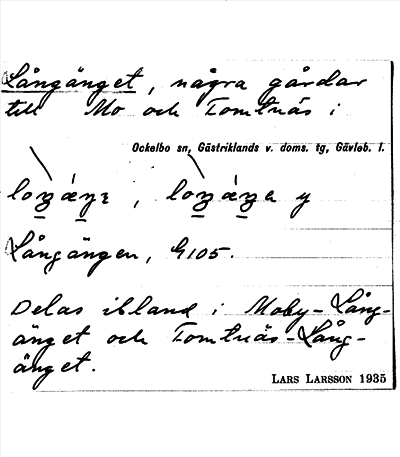 Långänget, några gårdar
till Mo och Tomtnäs i
Ockelbo sn, Gästriklands v. doms. tg, Gävleb. l.
Långängen, G105.
Delas ibland i Moby-Lång-
änget och Tomtnäs-Lång-
änget.
LARS LARSSON 1935